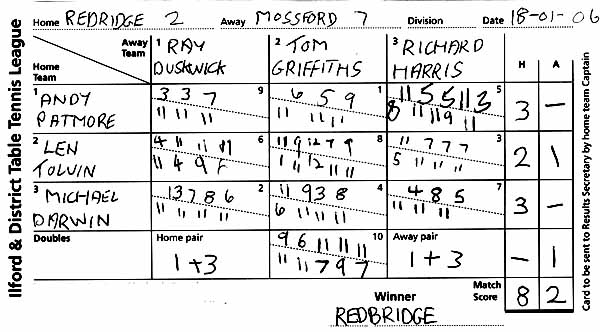 Ilford & District Table Tennis League
Home REDRIDGE 2 Away MOSSFORD 7 Division Date 18-01-06
Away Team Home Team 1 RAY DUSKWICK 2 TOM GRIFFITHS 3 RICHARD HARRIS H A
1 ANDY PATMORE
3 3 7 9
11 11 11
6 5 9 1
11 11 11
11 5 5 11 3 5
8 11 11 9 11
3 -
2 LEN TOLVIN
4 11 11 6
11 4 9
11 9 12 7 9 8
11 12 11 11
11 7 7 7 3
5 11 11 11
2 1
3 MICHAEL DARWIN
13 7 8 6 2
11 11 11
11 9 3 8 4
6 11 11 11
4 8 5 7
11 11 11
3 -
Doubles Home pair 1+3
9 6 11 11 11 10
11 11 7 9 7
Away pair 1+3
- 1
Winner REDBRIDGE Match Score 8 2
Card to be sent to Results Secretary by home team Captain